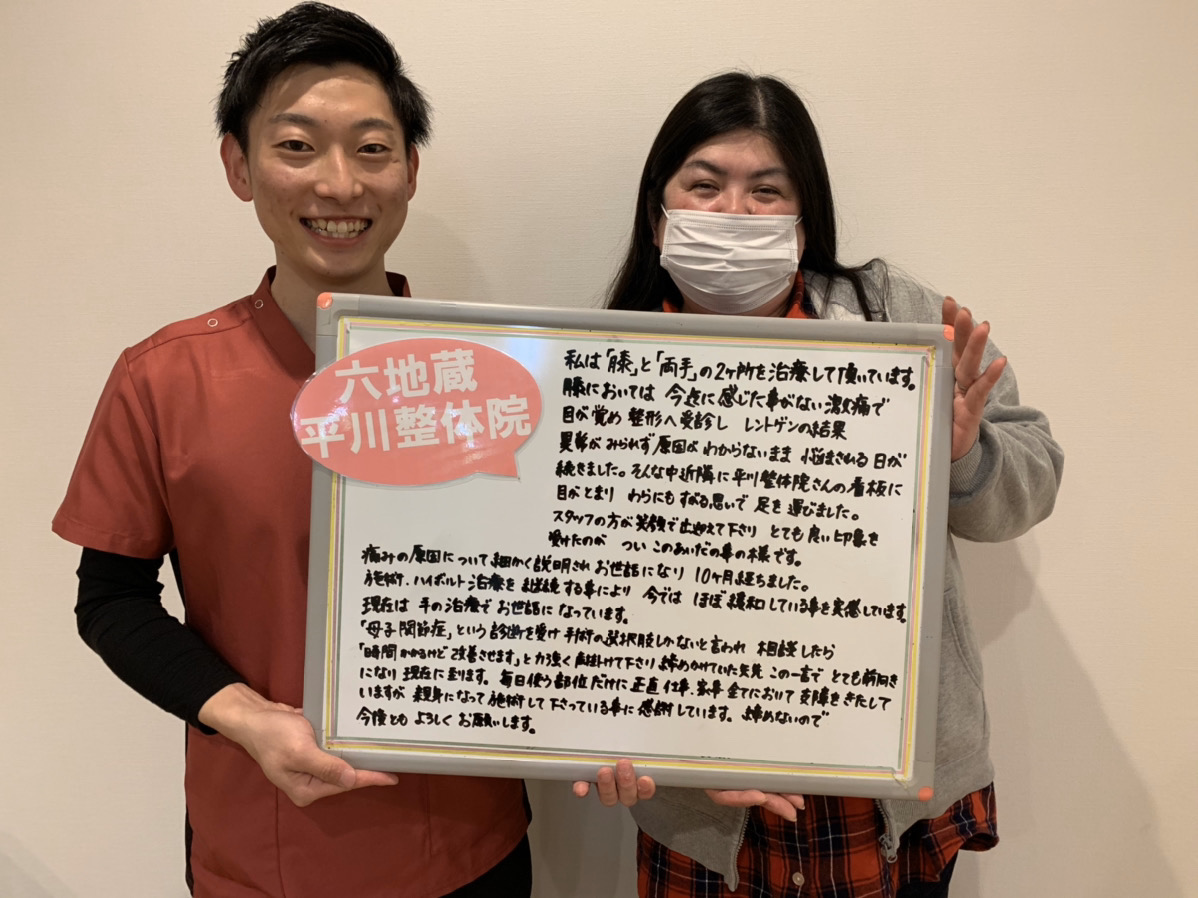 六地蔵
平川整体院
私は「膝」と「両手」の2ヶ所を治療して頂いています。
膝においては 今迄に感じた事がない激痛で
目が覚め 整形へ受診し レントゲンの結果
異常がみられず原因がわからないまま 悩まされる日が
続きました。そんな中近隣に平川整体院さんの看板に
目がとまり わらにもすがる思いで 足を運びました。
スタッフの方が笑顔で出迎えて下さり とても良い印象を
受けたのが ついこのあいだの事の様です。
痛みの原因について細かく説明されお世話になり 10ヶ月経ちました。
施術、ハイボルト治療を継続する事により 今では ほぼ緩和している事を実感しています。
現在は 手の治療でお世話になっています。
「母子関節症」という診断を受け手術の選択肢しかないと言われ 相談したら
「時間かかるけど改善させます」と力強く声掛けて下さり 諦めかけていた矢先 この一言で とても前向き
になり 現在に至ります。毎日使う部位だけに 正直 仕事、家事全てにおいて 支障をきたして
いますが 親身になって施術して下さっている事に感謝しています。諦めないので
今後とも よろしく お願いします。